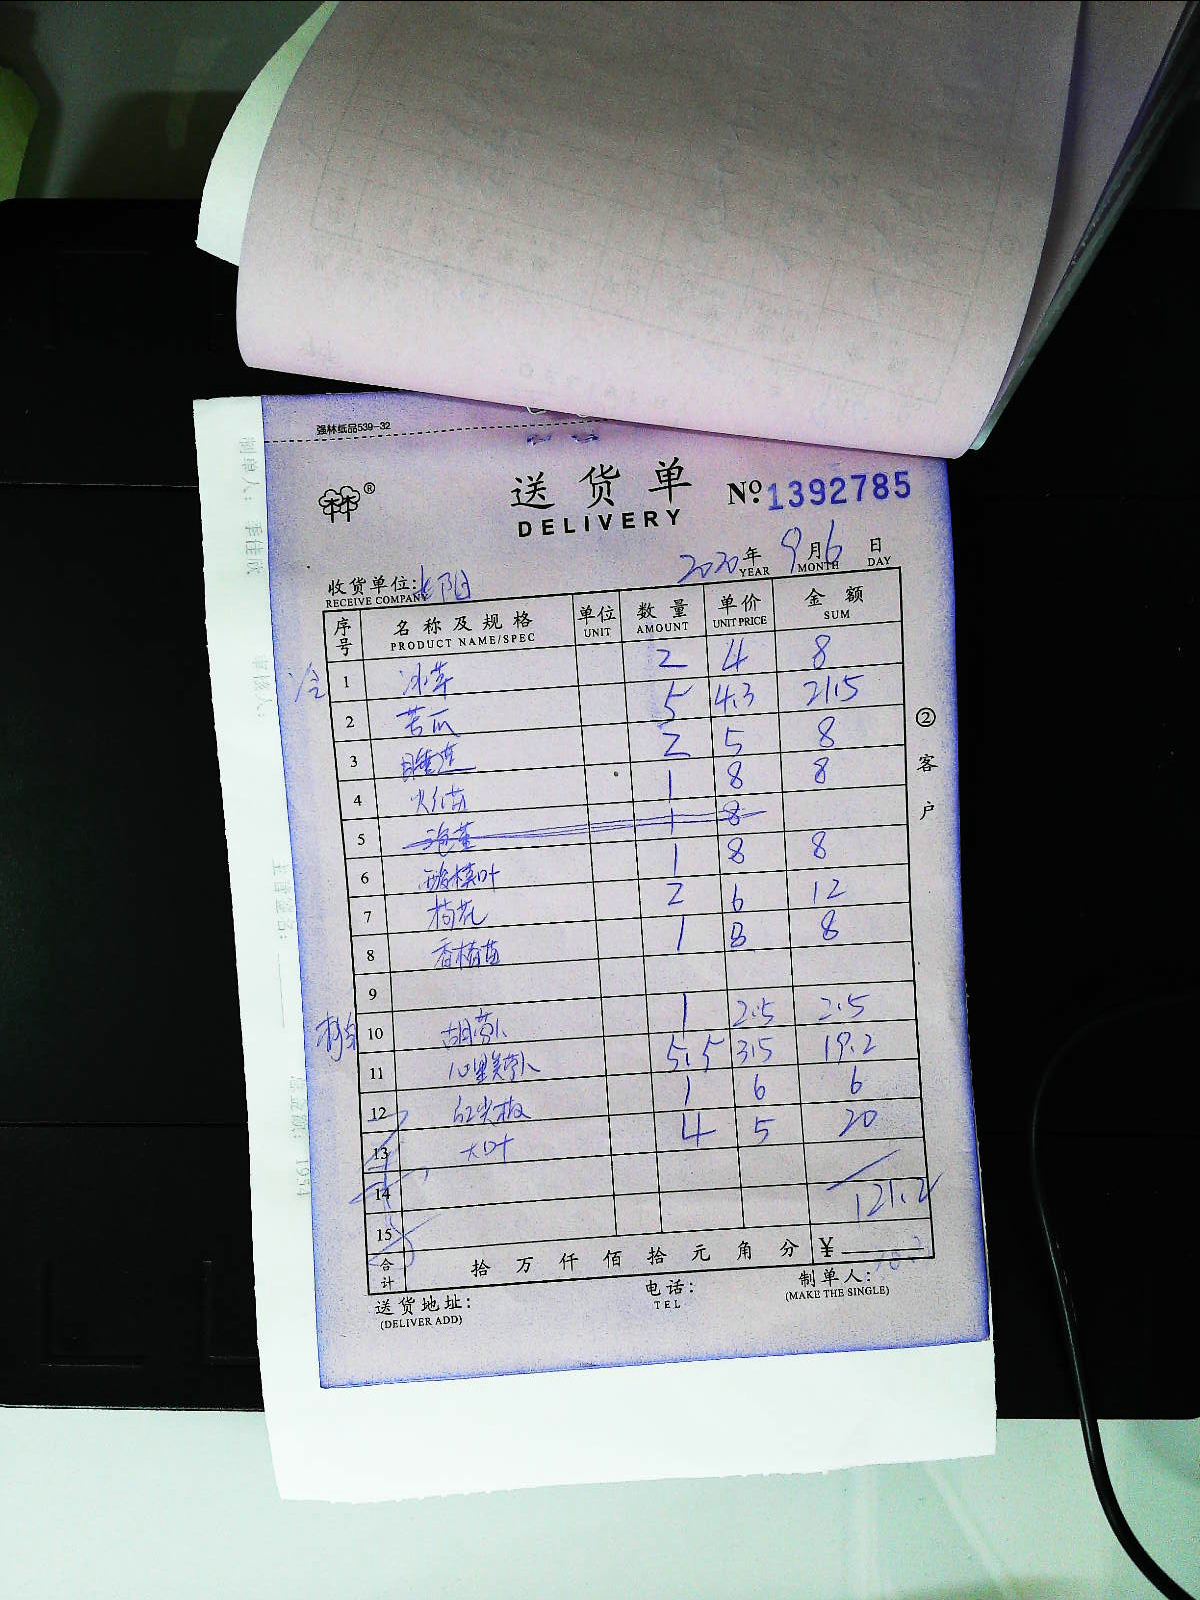 强林纸品539-32
送货单
DELIVERY
№ 1392785
2020年 9月6日
YEAR MONTH DAY
收货单位:
RECEIVE COMPANY
序号 名称及规格 单位 数量 单价 金额
PRODUCT NAME/SPEC UNIT AMOUNT UNIT PRICE SUM
冷 1 冰草 2 4 8
2 苦瓜 5 4.3 21.5
3 睡莲 2 5 8
4 火红苗 1 8 8
5 1 8
6 酸模叶 1 8 8
7 荷花 2 6 12
8 香椿苗 1 8 8
9
10 胡萝卜 1 2.5 2.5
11 心里美萝卜 5.5 3.5 19.2
12 红尖椒 1 6 6
13 大叶 4 5 20
14
15 121.2
合计 拾万仟佰拾元角分 ¥
送货地址:
(DELIVER ADD)
电话:
TEL
制单人:
(MAKE THE SINGLE)
②客户